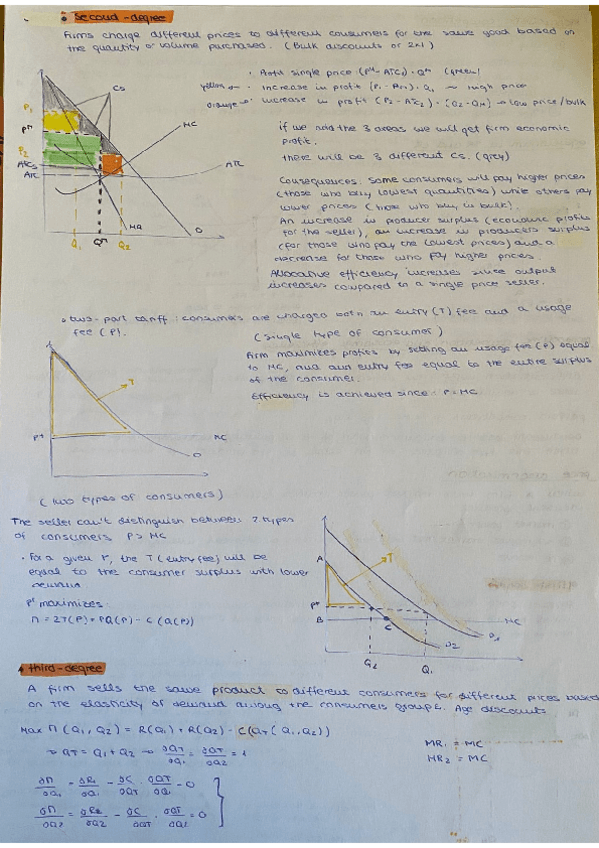 • Second-degree
Firms charge different prices to different consumers for the same good based on
the quantity or volume purchased. (Bulk discounts or 2x1)
single price (Pᴹ-ATC₀)·Qᴹ
yellow → · increase in profit · Q₁ ~ high price
orange → · increase in profit (P₂-ATC₂)·(Q₂-Qᴹ) → low price/bulk
if we add the 3 areas we will get firm economic
profit.
there will be 3 different CS. (grey)
Consequences. Some consumers will pay higher prices
(those who buy lowest quantities) while others pay
lower prices (those who buy in bulk).
An increase in producer surplus (economic profits
for the seller), an increase in producers surplus
(for those who pay the lowest prices) and a
decrease for those who pay higher prices.
Allocative efficiency increases since output
increases compared to a single price seller.
CS
P₁
Pᴹ
P₂
ATC₂
ATC
MC
ATC
MR
D
Q₁
Qᴹ
Q₂
• two-part tariff: consumers are charged both an entry (T) fee and a usage
fee (P).
(single type of consumer)
Firm maximizes profits by setting an usage fee (P) equal
to MC, and and entry fee equal to the entire surplus
of the consumer.
Efficiency is achieved since P=MC
T
P*
MC
D
(two types of consumers)
The seller can't distinguish between 2 types
of consumers P > MC
• For a given P, the T (entry fee) will be
equal to the consumer surplus with lower
demand
P* maximizes:
π = 2T(P) + PQ(P) - C(Q(P))
A
T
P*
B
C
MC
D₂
D₁
Q₂
Q₁
• third-degree
A firm sells the same product to different consumers for different prices based
on the elasticity of demand among the consumers groups. Age discounts
Max π(Q₁,Q₂) = R(Q₁) + R(Q₂) - C(QT(Q₁,Q₂))
→ QT = Q₁+Q₂ → ∂QT/∂Q₁ = ∂QT/∂Q₂ = 1
MR₁ = MC
MR₂ = MC
∂π/∂Q₁ = ∂R₁/∂Q₁ - ∂C/∂QT · ∂QT/∂Q₁ = 0
∂π/∂Q₂ = ∂R₂/∂Q₂ - ∂C/∂QT · ∂QT/∂Q₂ = 0